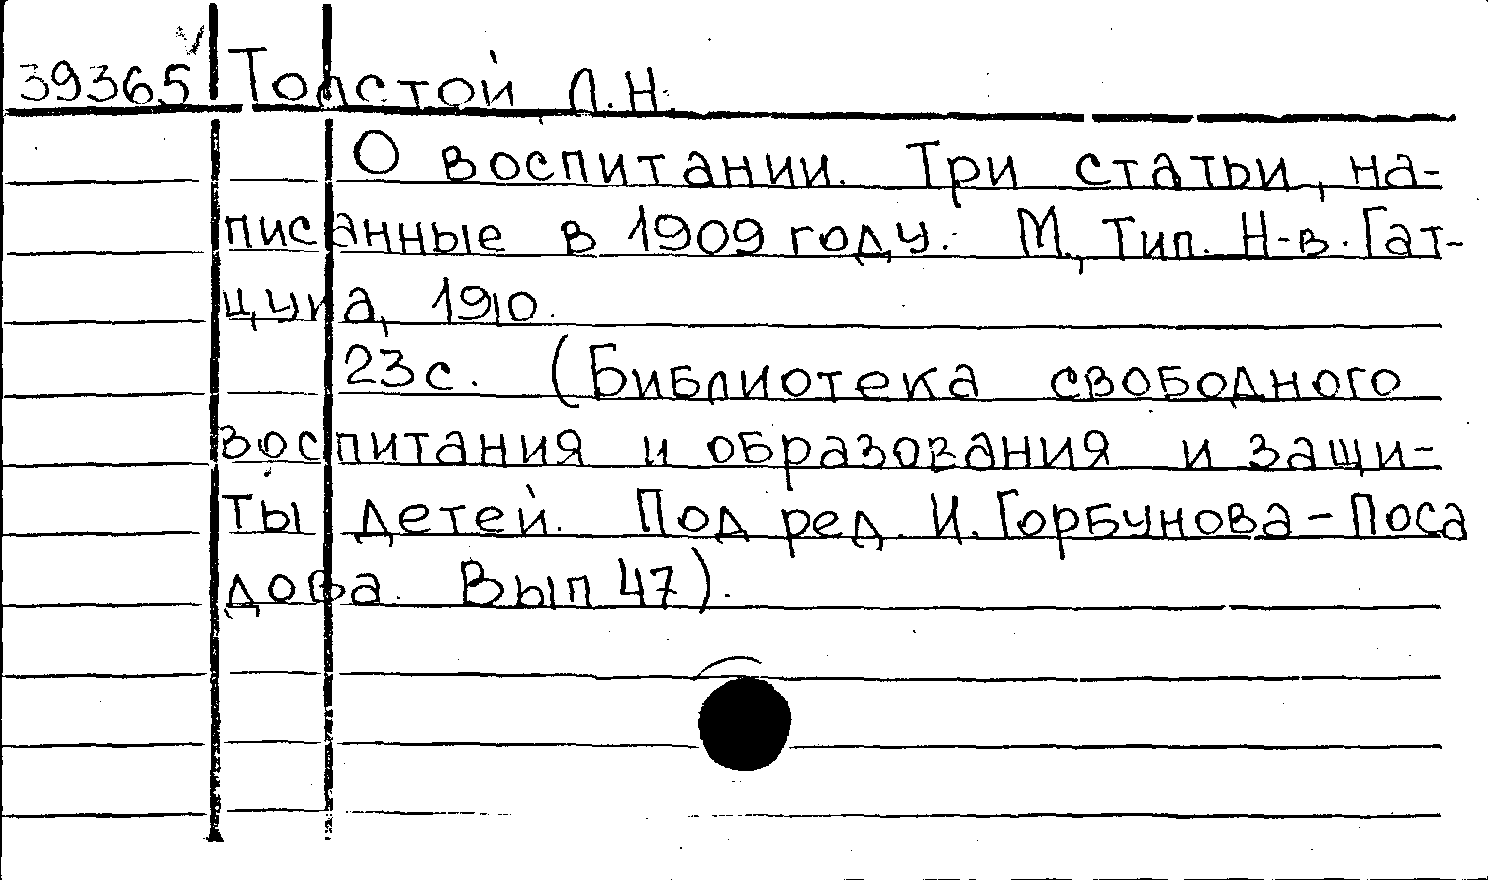 39365 Толстой Л.Н.
О воспитании. Три статьи, на-
писанные в 1909 году. М., Тип. Н-в. Гат-
цука, 1910.
23с. (Библиотека свободного
воспитания и образования и защи-
ты детей. Под ред. И. Горбунова-Поса
дова. Вып 47).